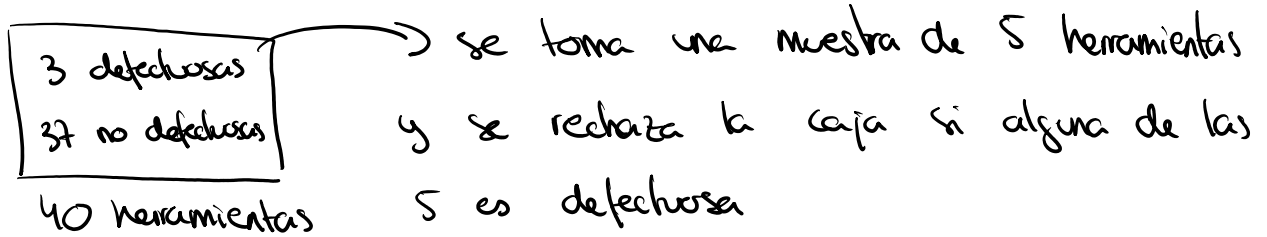 3 defectuosas
37 no defectuosas
40 herramientas
se toma una muestra de 5 herramientas
y se rechaza la caja si alguna de las
5 es defectuosa